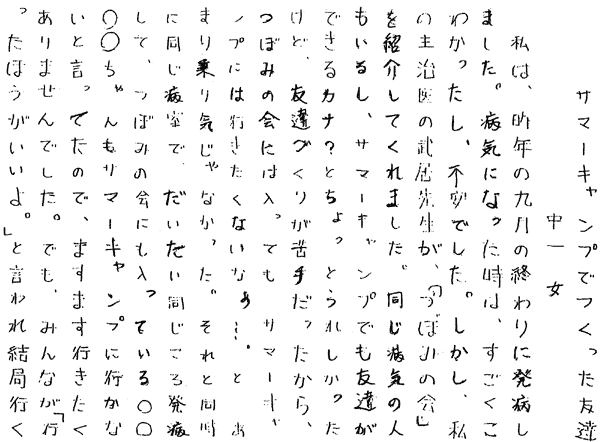 サマーキャンプでつくった友達
中一 女
私は、昨年の九月の終わりに発病し
ました。病気になった時は、すごくこ
わかったし、不安でした。しかし、私
の主治医の武居先生が、「つぼみの会」
を紹介してくれました。同じ病気の人
もいるし、サマーキャンプでも友達が
できるカナ?とちょっとうれしかった
けど、友達づくりが苦手だったから、
つぼみの会には入っても サマーキャ
ンプには行きたくないなぁ…。と あ
まり乗り気じゃなかった。それと同時
に同じ病室で、だいたい同じころ発病
して、つぼみの会にも入っている〇〇
〇〇ちゃんもサマーキャンプに行かな
いと言ってたので、ますます行きたく
ありませんでした。でも、みんなが「行
ったほうがいいよ。」と言われ結局行く